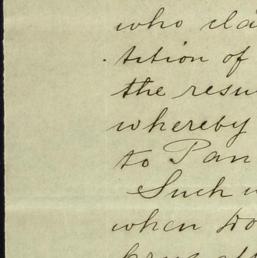 who cla
tition of
the resu
whereby
to Pan
Such
when